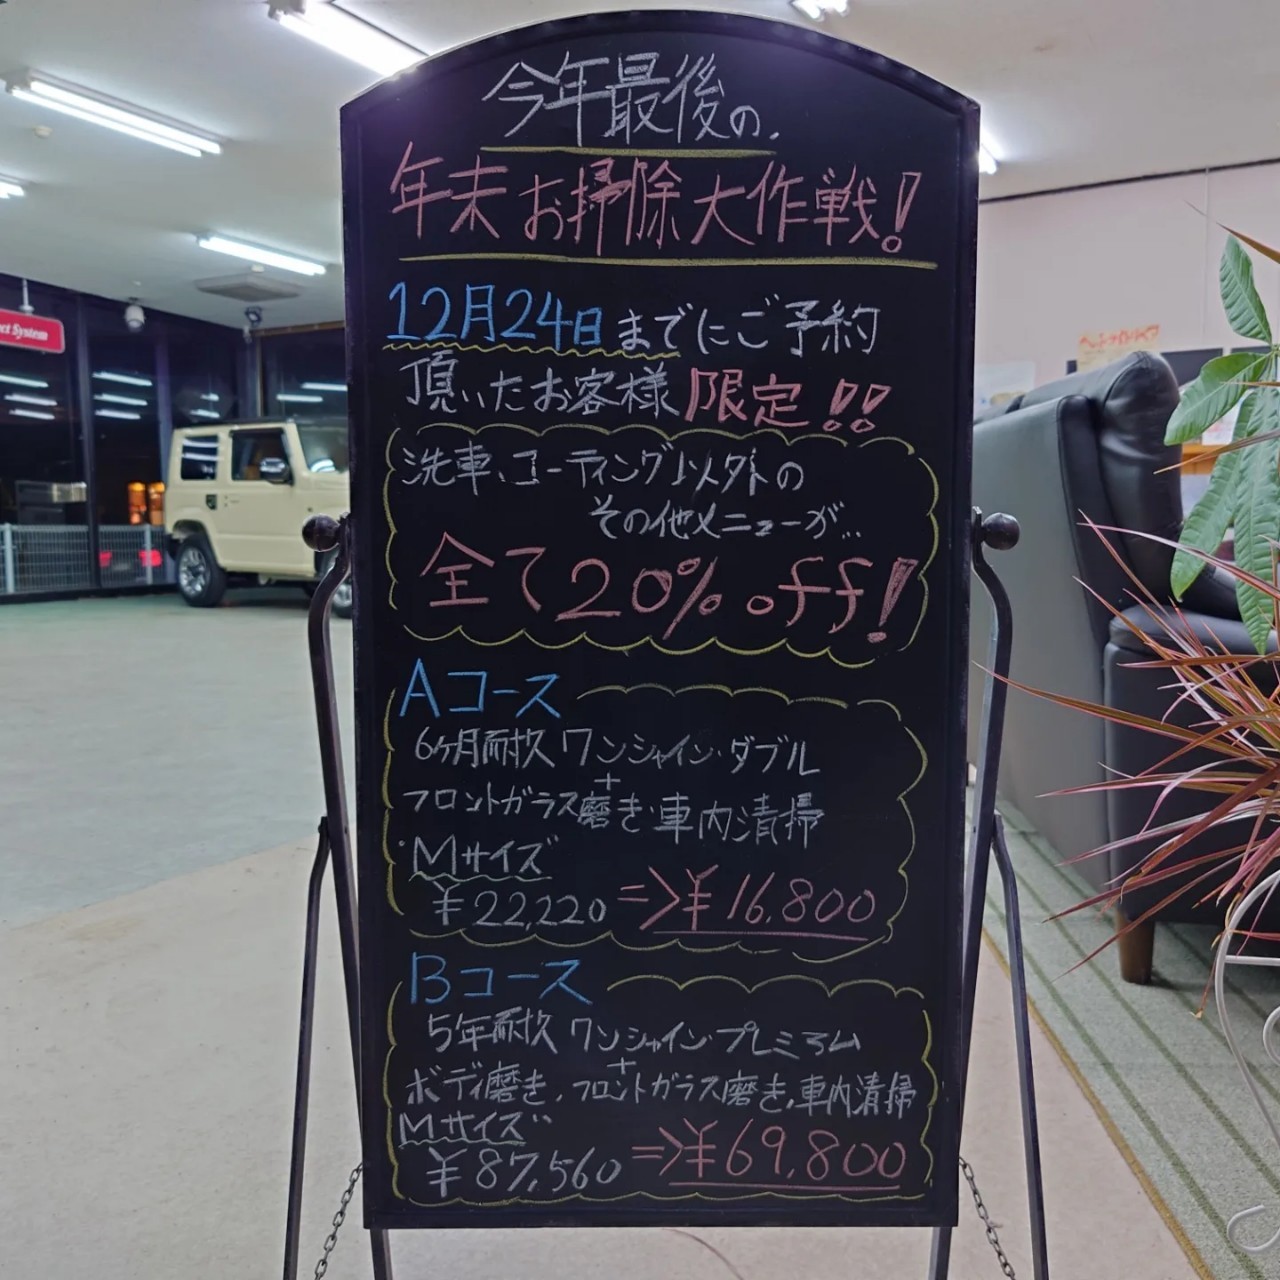 今年最後の.
年末お掃除大作戦!
12月24日までにご予約
頂いたお客様限定!!
洗車、コーティング以外の
その他メニューが…
全て20%off!
Aコース
6ヶ月耐久ワンシャイン・ダブル
+
フロントガラス磨き・車内清掃
・Mサイズ
¥22,220⇒¥16,800
Bコース
5年耐久ワンシャイン・プレミアム
+
ボディ磨き、フロントガラス磨き、車内清掃
Mサイズ
¥87,560⇒¥69,800
ect System